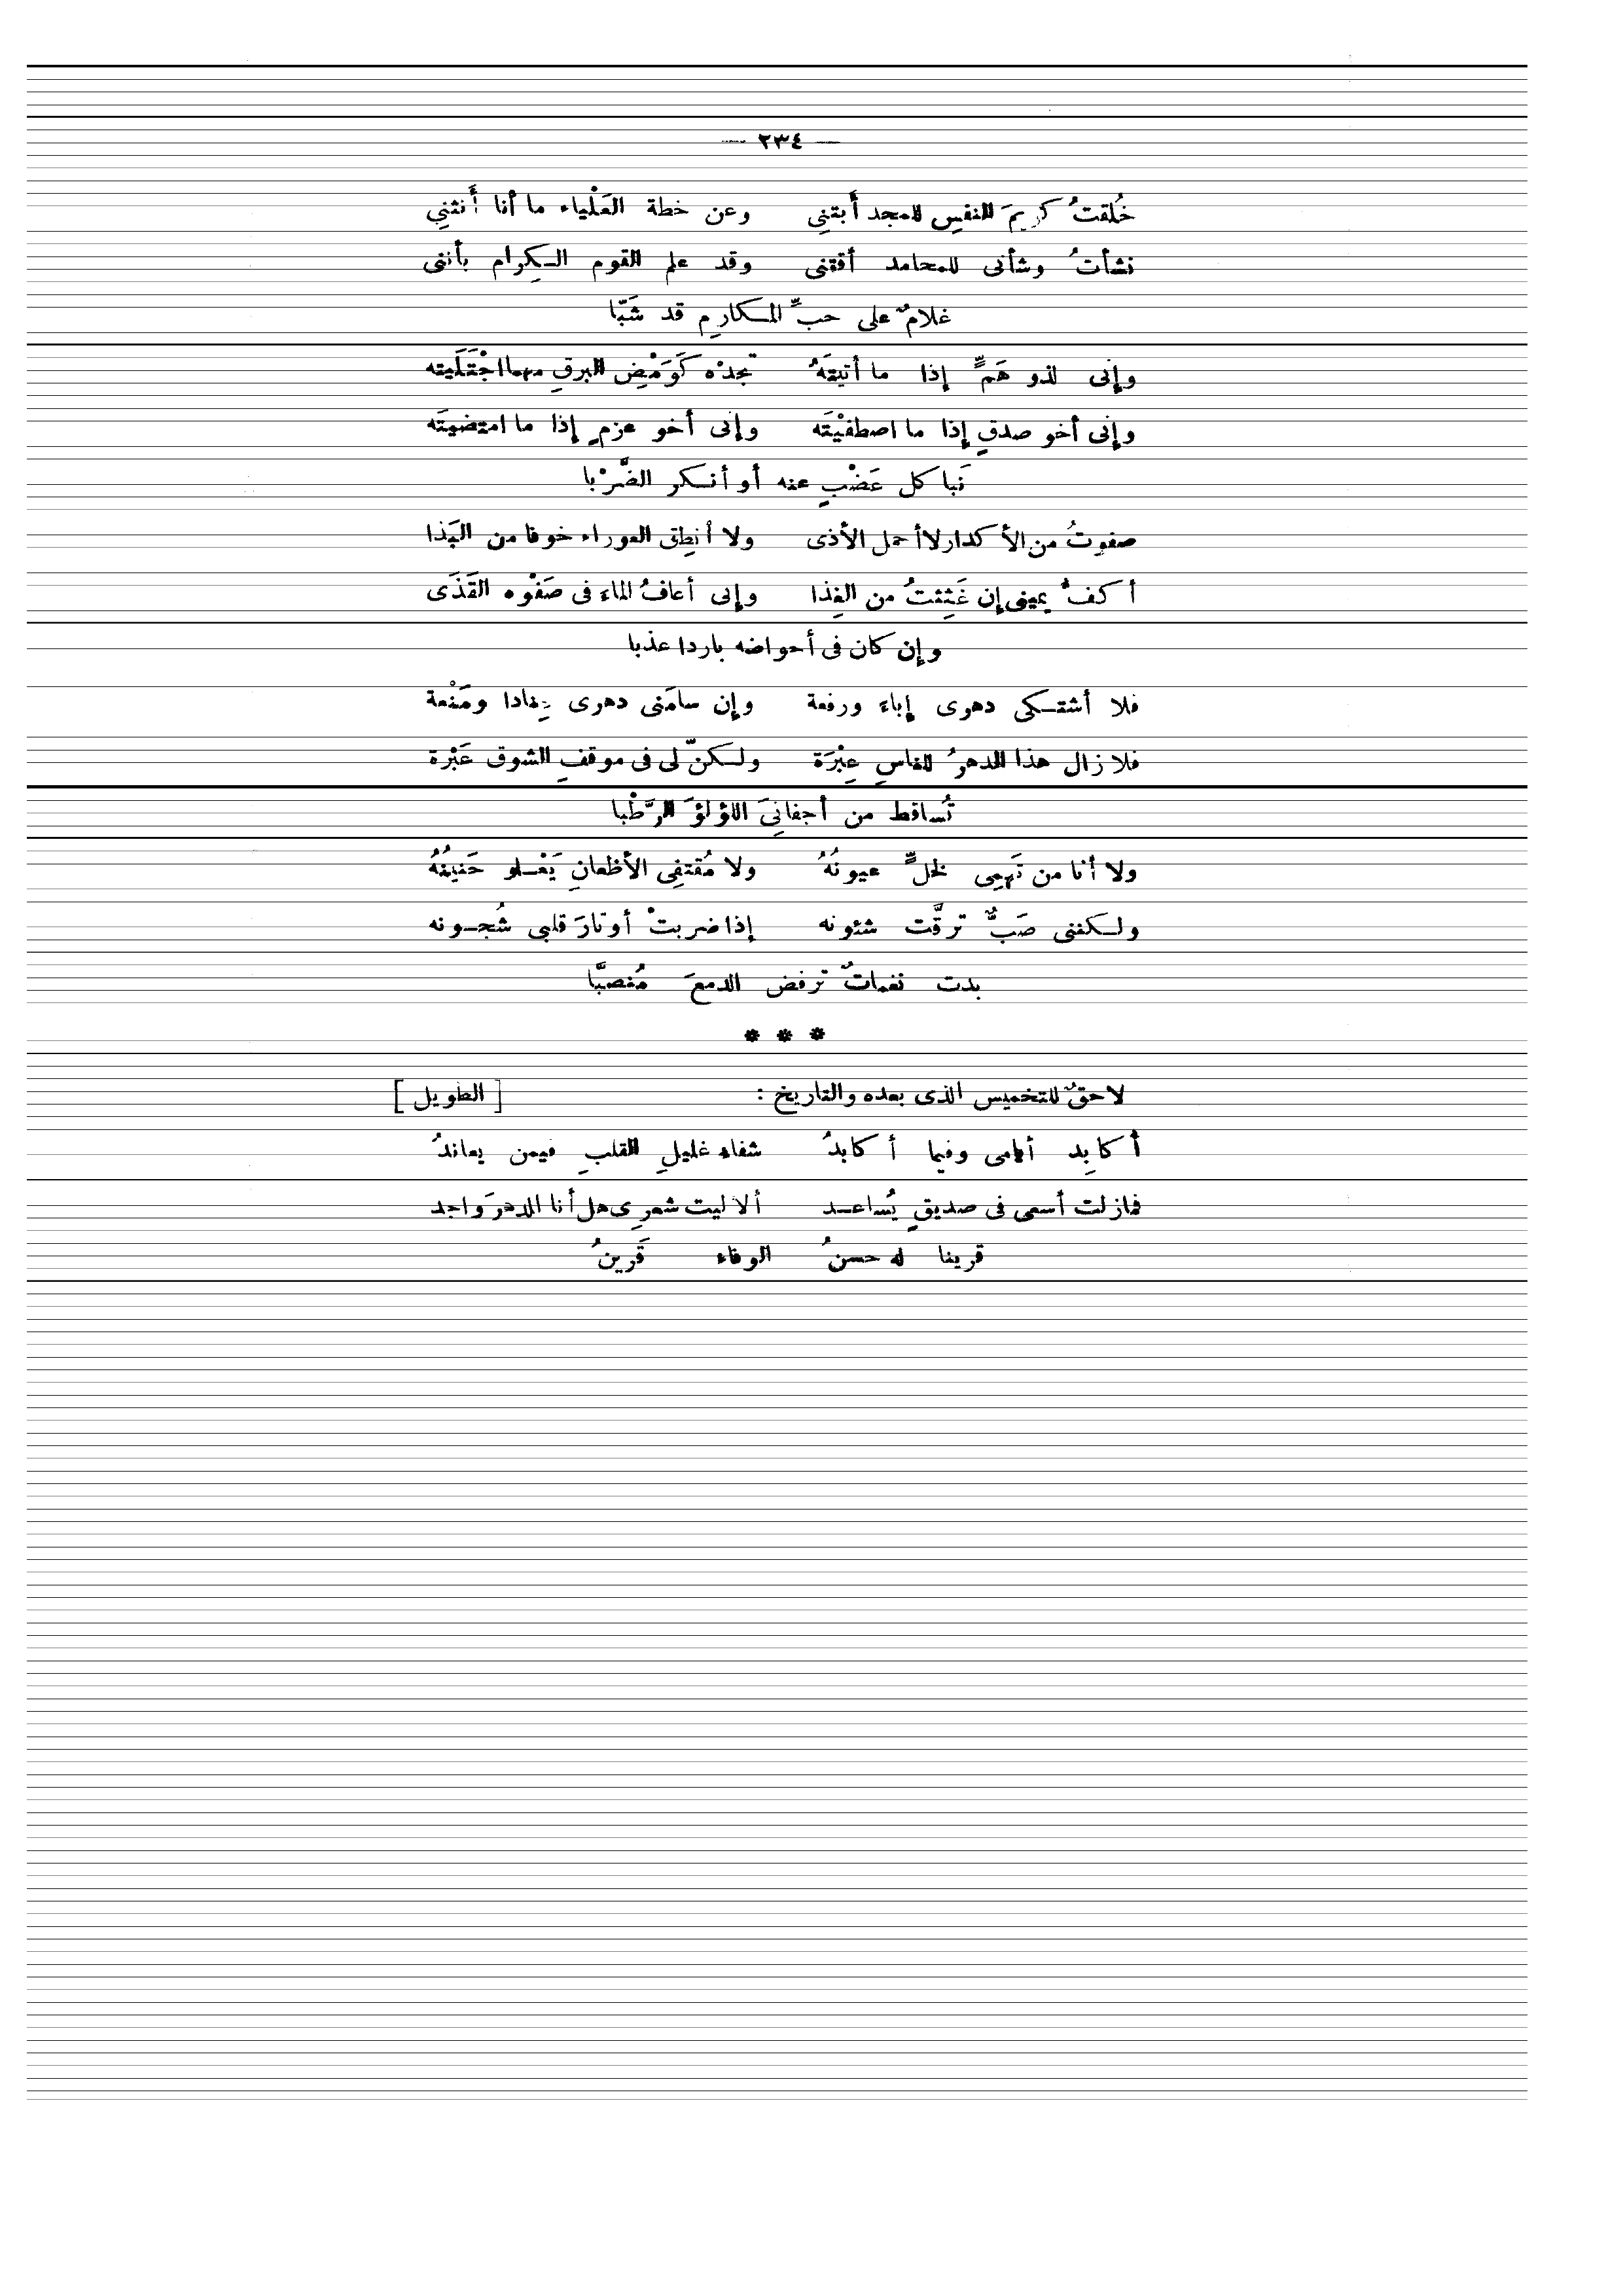 — ٢٣٤ —
خُلقتُ كريمَ النفسِ للمجد أَبتنِي وعن خطة العَلْياء ما أنا أَنثنِي
نشأتُ وشأنى للمحامد أقتنى وقد علم القوم الكِرام بأننى
غلامٌ على حبِّ المكارِم قد شَبّا
وإنى لذو هَمٍّ إذا ما أتيتَهُ تجدْه كَوَمْضِ البرقِ مهما اجْتَلَيته
وإنى أخو صدقٍ إذا ما اصطفيْتَه وإنى أخو عزمٍ إذا ما امتضيتَه
نَبا كل عَضْبٍ عنه أو أنكر الضَّرْبا
صفوتُ من الأكدار لا أحمل الأذى ولا أنطِق العوراء خوفا من البَذا
أكفُّ يمينى إن غَثِثتُ من الغِذا وإنى أعافُ الماءَ فى صَفْوه القَذَى
وإن كان فى أحواضه باردا عذبا
فلا أشتكى دهرى إباءً ورفعة وإن سامَنى دهرى عِنادا ومَنْعة
فلا زال هذا الدهرُ للناسِ عِبْرَة ولكنّ لى فى موقفِ الشوق عَبْرة
تُساقط من أجفانِىَ اللؤلؤَ الرَّطْبا
ولا أنا من تَهمِى لخلٍّ عيونُهُ ولا مُقتفِى الأظعانِ يَعْلو حَنينُهُ
ولكننى صَبٌّ ترقَّت شئونه إذا ضربتْ أوتارَ قلبى شُجونه
بدت نغماتٌ ترفض الدمعَ مُنصبَّا
* * *
لاحقٌ للتخميس الذى بعده والتاريخ : [ الطويل ]
أكابِد أيامى وفيما أكابدُ شفاء غليلِ القلبِ فيمن يعاندُ
فمازلت أسعى فى صديقٍ يُساعد ألا ليت شعرِى هل أنا الدهرَ واجد
قرينا له حسنُ الوفاء قَرينُ